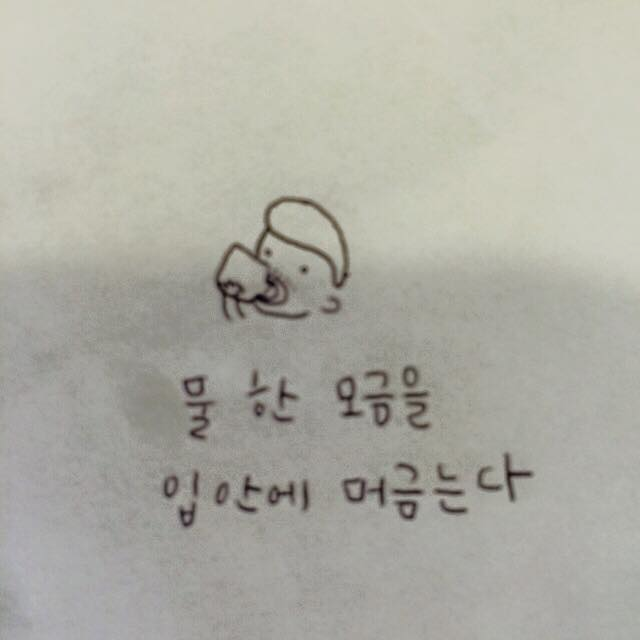 물 한 모금을
입안에 머금는다